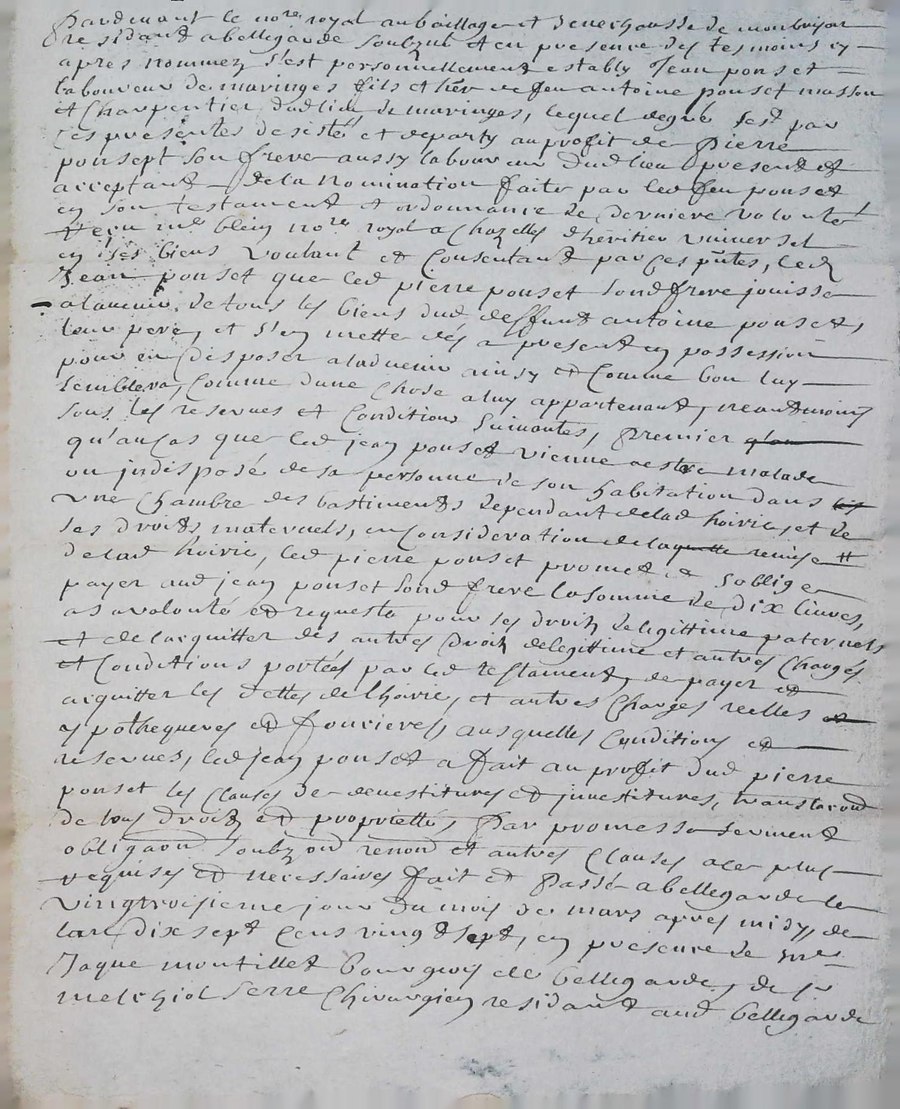 Pardevant le no.re royal au bailliage et Senechaussé de montbrison
residant a bellegarde Soubzné et en presence des tesmoins cy
apres nommez s'est personnellement estably Jean ponset
laboureur de maringes fils et her de feu antoine ponset masson
et charpentier dud lieu de maringes, lequel de gré sest par
ces presentes desisté et departy au profit de Pierre
ponsept son frere aussy laboureur dud lieu present et
acceptant de la nomination faite par led feu ponset
en son testament et ordonnance de derniere volonté
receu me blein no.re royal a Chazelles d'héritier universel
en ses biens voulant et consentant par ces pntes, led
Jean ponset que led pierre ponset sond frere jouisse
alavenir de tous les biens dud deffunt antoine ponset,
leur pere, et s'en mette dés a present en possession
pour en disposer aladvenir ainsy et comme bon luy
semblera, comme dune chose a luy appartenant, neantmoins
sous les reserves et conditions suivantes, premier
qu'au cas que led jean ponset vienne a estre malade
ou jndisposé de sa personne de son habitation dans
une chambre des bastiments dependant delad hoirie, et de
ses droits maternels, en consideration de la remise
delad hoirie, led pierre ponset promet et s'oblige
payer aud jean ponset sond frere la somme de dix livres,
a sa volonté et requeste pour ses droits de legittime paternels
et de l'acquitter des autres droits de legittime et autres charges
et conditions portées par led testament, de payer et
acquitter les dettes de l'hoirie, et autres charges reelles
ypothequeres et foncieres, ausquelles conditions et
reserves, led jean ponset a fait au profit dud pierre
ponset les clauses de devestitures et jnvestitures, translaond
de tous droits et proprietté, Par promesse serment
obligaond soubzond renond et autres clauses a ce plus
requises et necessaires fait et Passé a bellegarde le
vingtroisieme jour du mois de mars apres midy, de
lan dix sept cens vingt sept, en presence de mre
Jaque montillet bourgeois de bellegarde, de sr
melchiol serre chirurgien residant aud bellegarde